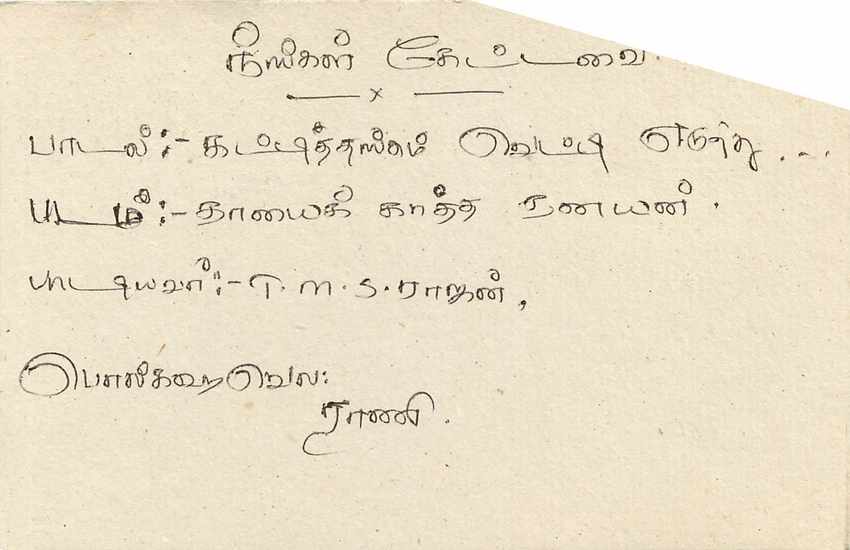 நீங்கள் கேட்டவை.
— x —
பாடல்:- கட்டித்தங்கம் வெட்டி எடுத்து...
படம்:- தாயைக் காத்த தனயன்.
பாடியவர்:- T. M. S. ராஜன்,
பொலிகறவெல:
ராணி.